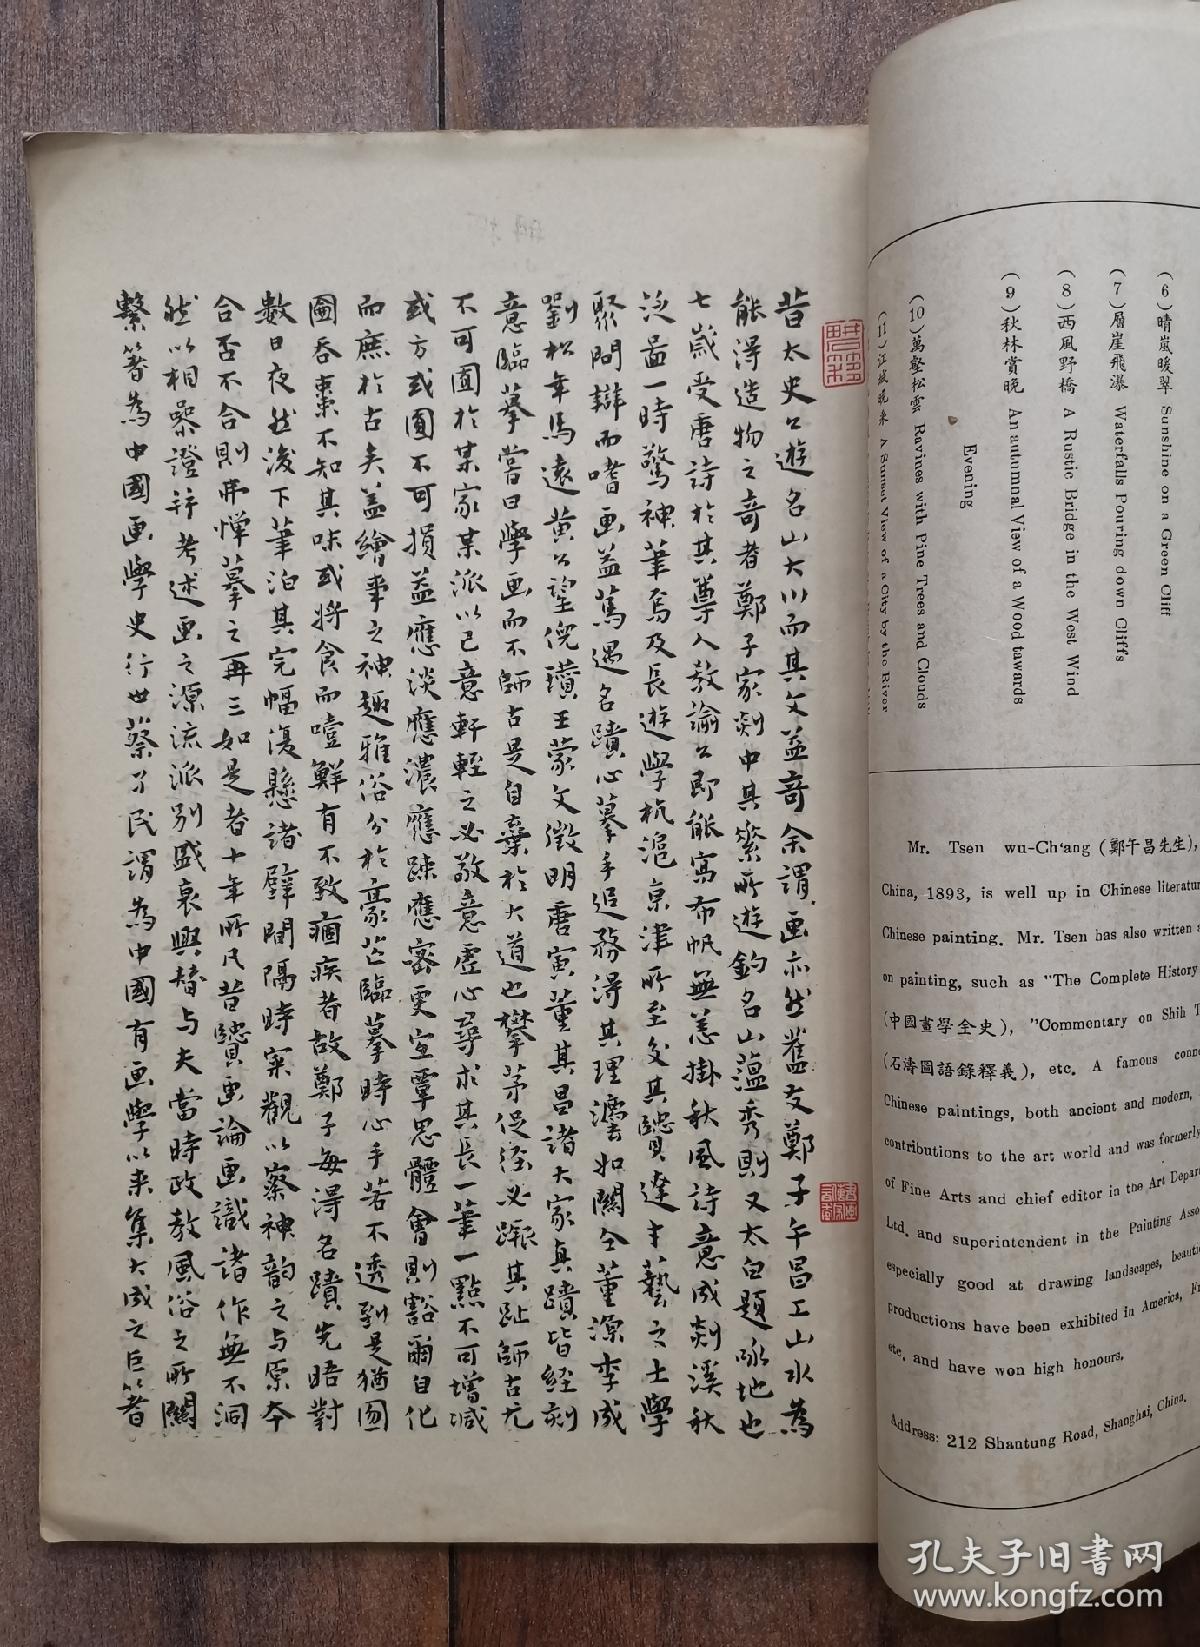 昔太史公遊名山大川而其文益奇余謂画亦然舊友鄭子午昌工山水為
能得造物之奇者鄭子家剡中其縈所遊釣名山蘊秀則又太白題咏地也
七歲受唐詩於其尊人教諭公即能寫布帆無恙掛秋風詩意成剡溪秋
泛啚一時驚神筆焉及長遊學杭滬京津所至交其賢達才藝之士學
聚問辯而嗜画益篤遇名蹟心摹手追務得其理灋如關仝董源李成
劉松年馬遠黄公望倪瓚王蒙文徵明唐寅董其昌諸大家真蹟皆經刻
意臨摹嘗曰學画而不師古是自棄於大道也攀茅促逕必蹶其趾師古尤
不可囿於某家某派以己意軒輊之必敬意虛心尋求其長一筆一點不可增減
或方或圓不可損益應淡應濃應踈應密更宜覃思體會則豁爾自化
而庶於古夫蓋繪事之神趣雅俗分於豪芒臨摹時心手若不透到是猶囫
圇吞棗不知其味或將食而噎鮮有不致痼疾者故鄭子每得名蹟先晤對
數日夜然後下筆泊其完幅復懸諸壁間隔時寀觀以察神韵之与原本
合否不合則弗憚摹之再三如是者十年所凡昔賢画論画識諸作無不洞
然以相檃證并考述画之源流派别盛衰興替与夫當時政教風俗之所關
繫箸為中國画學史行世蔡孑民謂為中國有画學以来集大成之巨箸
(6) 晴嵐暖翠 Sunshine on a Green Cliff
(7) 層崖飛瀑 Waterfalls Pouring down Cliffs
(8) 西風野橋 A Rustic Bridge in the West Wind
(9) 秋林賞晚 An autumnal View of a Wood tawards
Evening
(10) 萬壑松雲 Ravines with Pine Trees and Clouds
(11) 江城晚來 A Sunset View of a City by the River
Mr. Tsen wu-Ch'ang (鄭午昌先生),
China, 1893, is well up in Chinese literatur
Chinese painting. Mr. Tsen has also written
on painting, such as "The Complete History
(中國畫學全史), "Commentary on Shih T
(石濤圖語錄釋義), etc. A famous conn
Chinese paintings, both ancient and modern,
contributions to the art world and was formerly
of Fine Arts and chief editor in the Art Depar
Ltd. and superintendent in the Painting Asso
especially good at drawing landscapes, beauti
productions have been exhibited in America, Fr
etc. and have won high honours.
Address: 212 Shantung Road, Shanghai, China.
孔夫子旧书网
www.kongfz.com